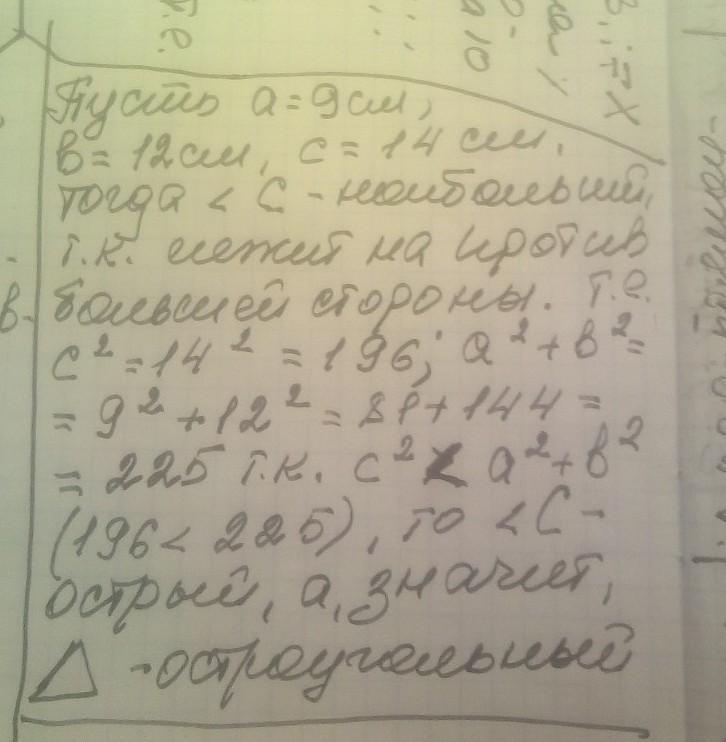 т.е.
а 10
Пусть a = 9см,
в = 12см, c = 14 см.
тогда < C - наибольший,
т.к. лежит на против
большей стороны. т.е.
c² = 14² = 196; a² + в² =
= 9² + 12² = 81 + 144 =
= 225 т.к. c² < a² + в²
(196 < 225), то < C -
острый, а, значит,
△ - остроугольный